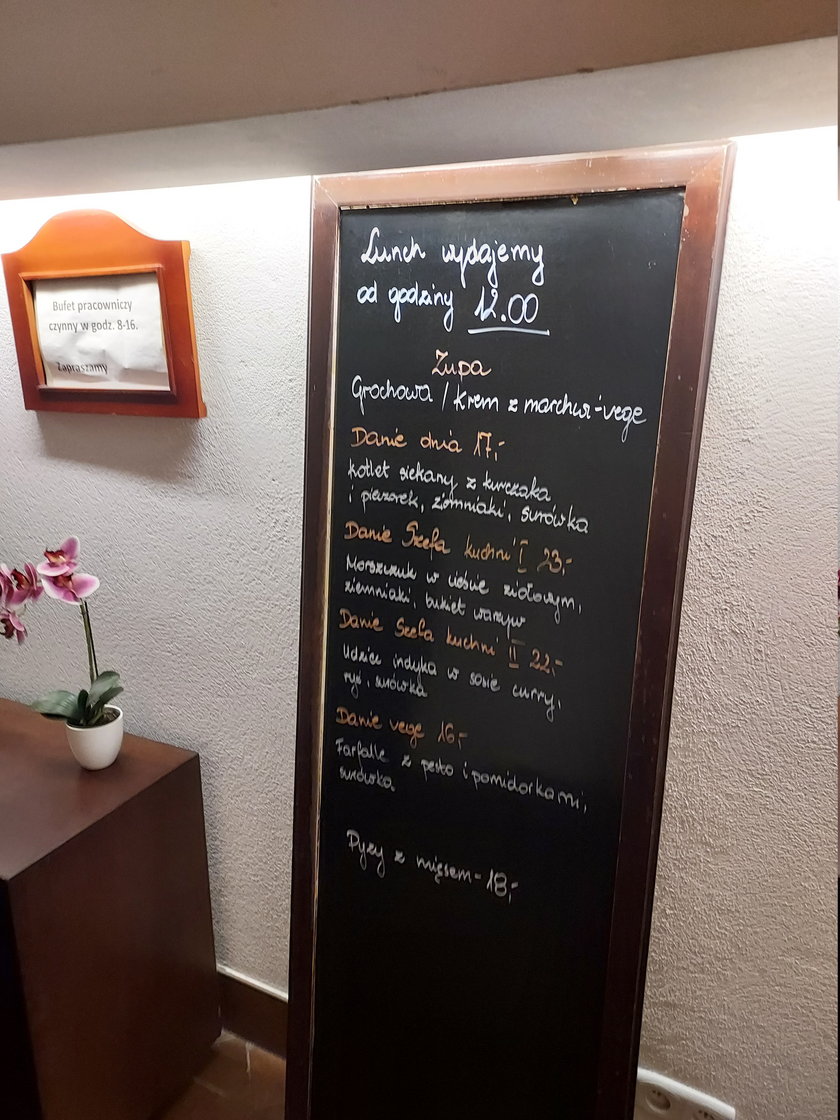 Bufet pracowniczy
czynny w godz. 8-16.
Zapraszamy
Lunch wydajemy
od godziny 12.00
Zupa
Grochowa / Krem z marchwi-vege
Danie dnia 17,-
Kotlet siekany z kurczaka
i pieczarek, ziemniaki, surówka
Danie Szefa kuchni I 23,-
Morszczuk w cieście ziołowym,
ziemniaki, bukiet warzyw
Danie Szefa kuchni II 22,-
Udziec indyka w sosie curry,
ryż, surówka
Danie vege 16,-
Farfalle z pesto i pomidorkami,
surówka
Pyzy z mięsem - 18,-